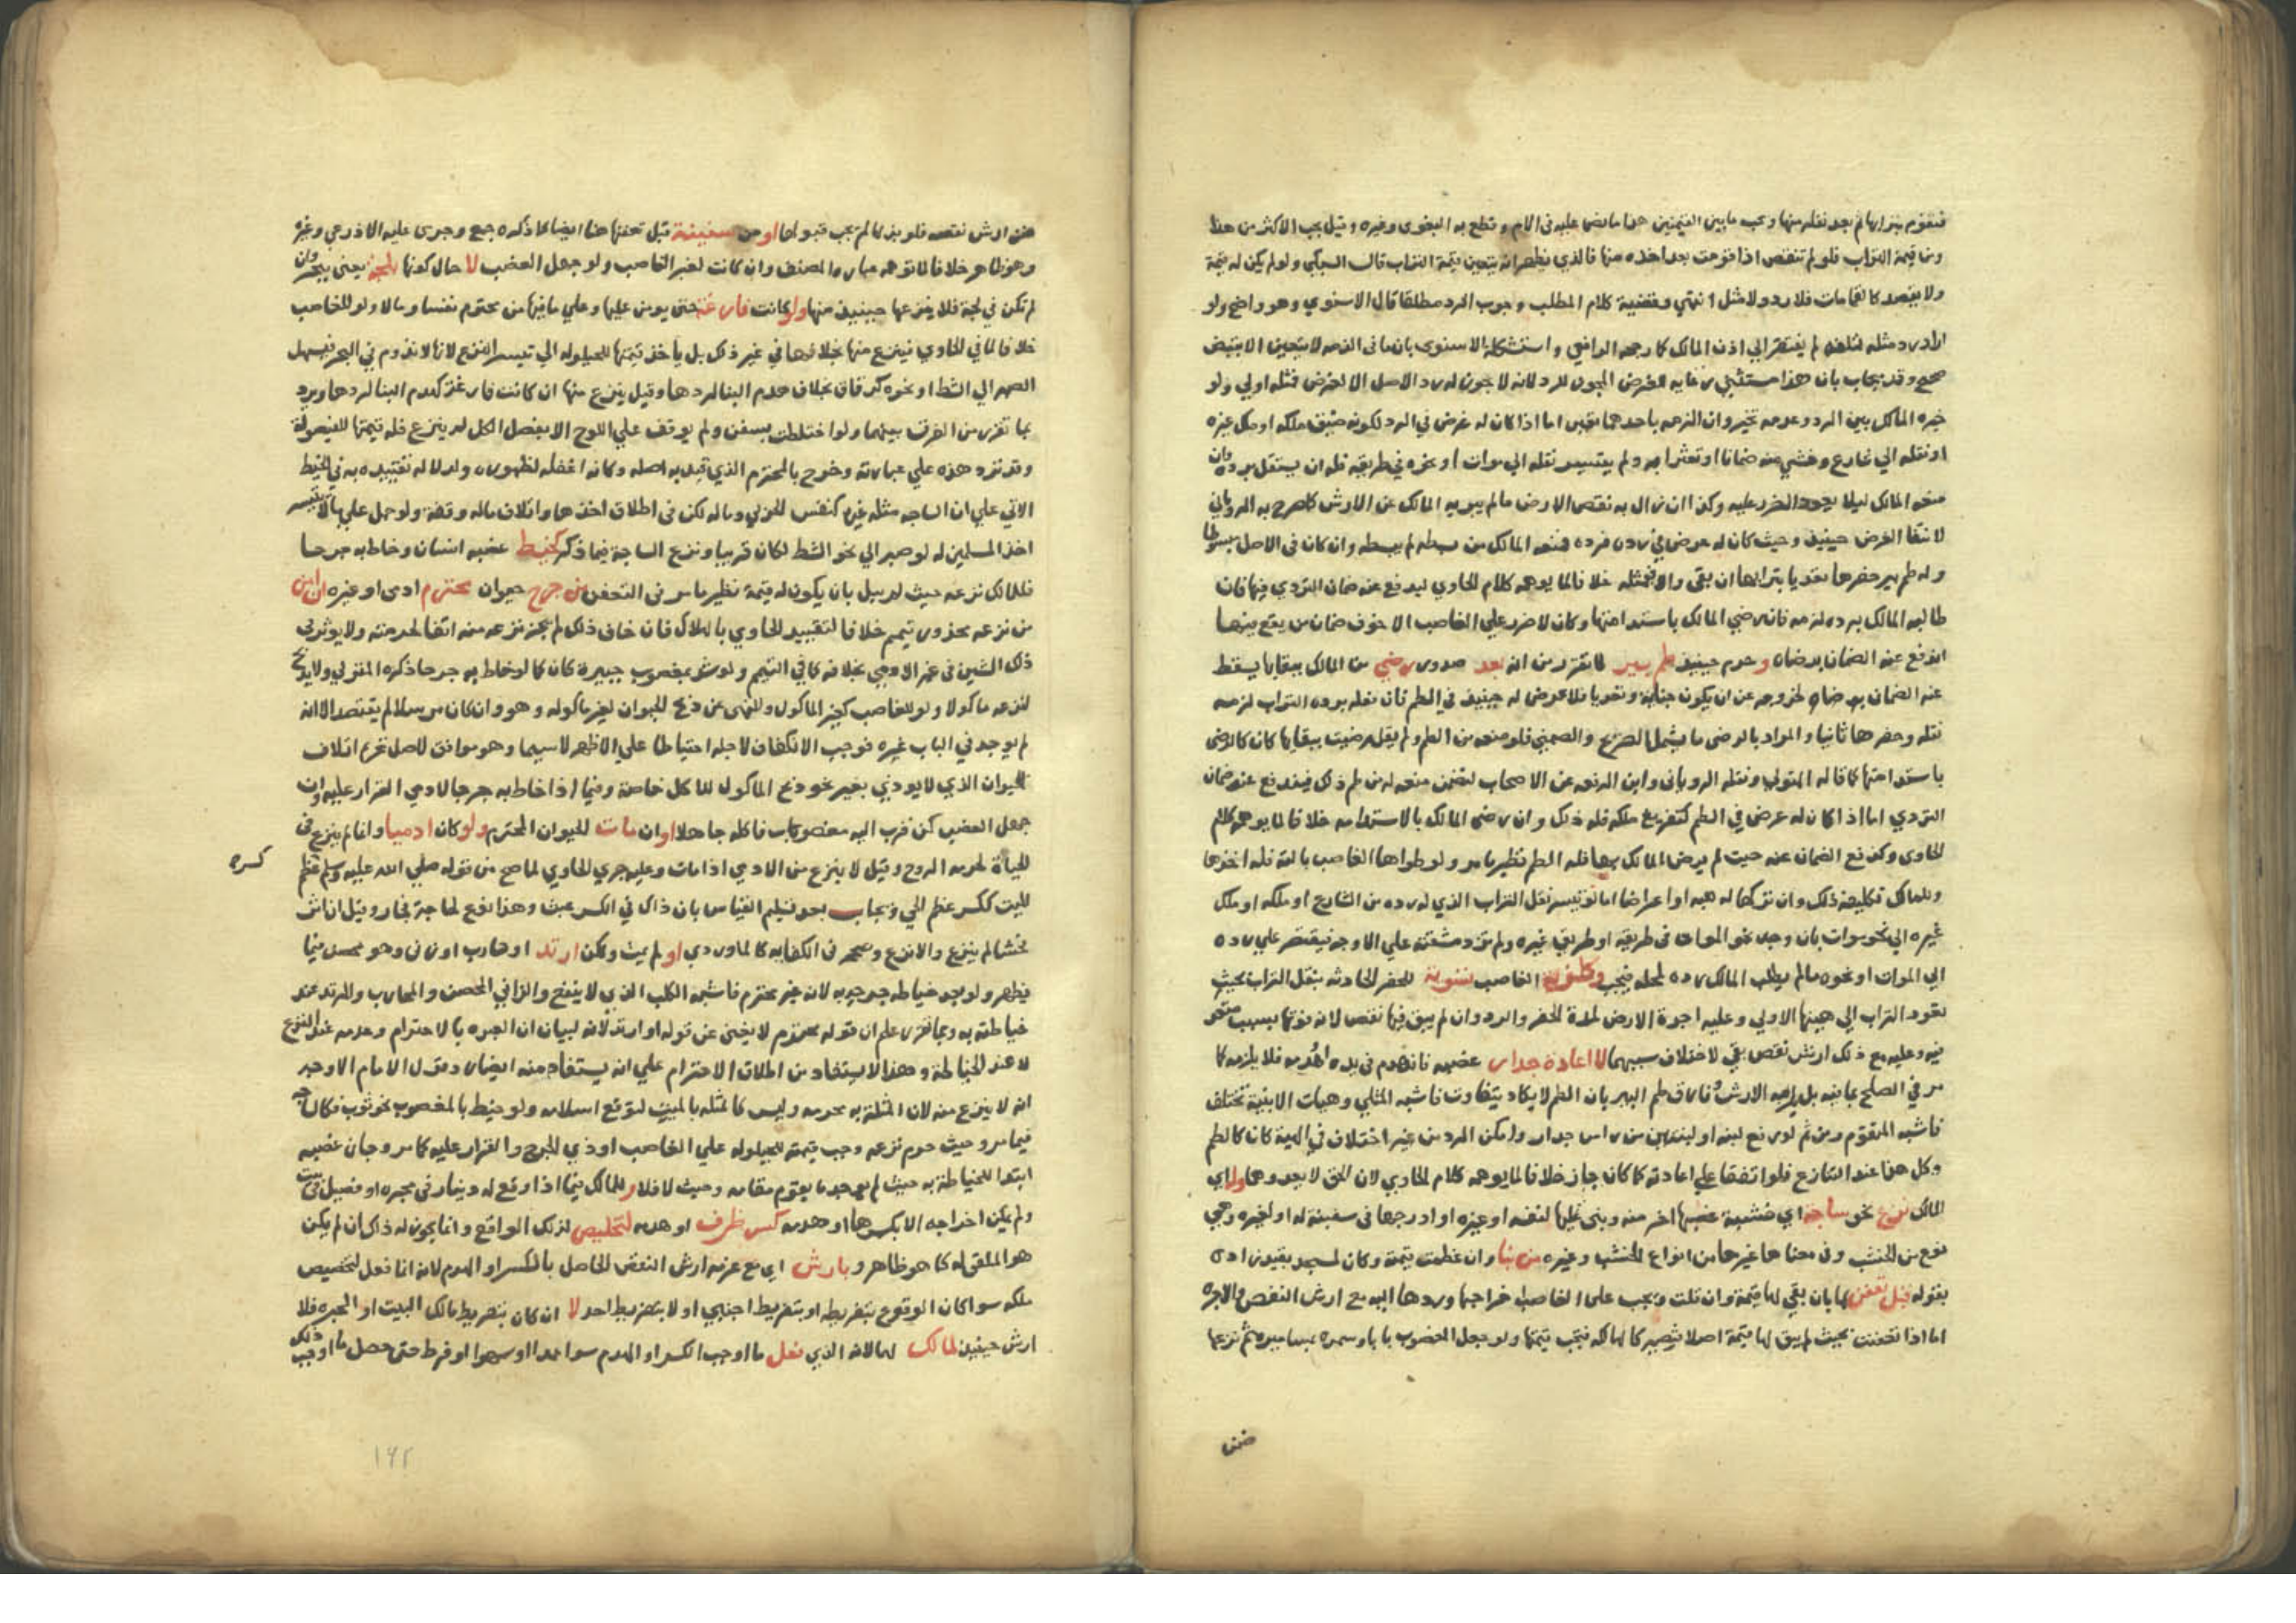 فتقوم بترابها ثم بعد نقله منها ويجب ما بين القيمتين هذا ما نص عليه في الام وقطع به البغوي وغيره وقيل يجب الاكثر من هذا
ومن قيمة التراب فلو لم تنقص اذا قومت بعد اخذه منها فالذي يظهر انه يتعين قيمة التراب قال السبكي ولو لم يكن له قيمة
ولا يقصد كالقمامات فلا رد ولا مثل انتهي وقضية كلام المطلب وجوب الرد مطلقا قال الاسنوي وهو واضح ولو
اراد رد مثله لتلفه لم يفتقر الي اذن المالك كما رجحه الرافعي واستشكله الاسنوي بان ما في الذمه لا يتعين الا بقبض
صحيح وقد يجاب بان هذا مستثني رعايه للغرض المجوز للرد لانه لا يجوز له رد الاصل الا لغرض فمثله اولي ولو
خيره المالك بين الرد وعدمه تخير وان الزمه باحدهما تعين اما اذا كان له غرض في الرد لكونه ضيق ملكه او ملك غيره
او نقله الي شارع وخشي منه ضمانا او تعثرا به ولم يتيسر نقله الي موات او نحوه في طريقه فله ان يستقل برده وان
منعه المالك ليلا يحد الضرر عليه وكذا ان زال به نقص الارض ما لم يبريه المالك عن الارش كما صرح به الروياني
لانتفا الغرض حينيذ وحيث كان له غرض في رده فرده فمنعه المالك من بسطه لم يبسطه وان كان في الاصل مبسوطا
وله طم بير حفرها تعديا بترابها ان بقي والا فبمثله خلافا لما يوهمه كلام الحاوي ليدفع عنه ضمان التردي فيها فان
طالبه المالك برده لزمه فان رضي المالك باستدامتها وكان لا ضرر علي الغاصب الا خوف ضمان من يقع فيها
اندفع عنه الضمان برضاه وحرم حينيذ طم بير لما تقرر من انه بعد صدور رضي من المالك ببقايها يسقط
عنه الضمان برضاه لخروجه عن ان يكون جناية وتعديا فلا غرض له حينيذ في الطم فان نقله برده التراب لزمه
نقله وحفرها ثانيا والمراد بالرضي ما يشمل الصريح والضمني فلو منعه من الطم ولم يقل رضيت ببقايها كان كالرضي
باستدامتها كما قاله المتولي ونقله الروياني وابن الرفعه عن الاصحاب لتضمن منعه له من طم ذلك فيندفع عنه ضمان
التردي اما اذا كان له غرض في الطم كتفريغ ملكه فله ذلك وان رضي المالك بالاستدامه خلافا لما يوهمه كلام
الحاوي وكدفع الضمان عنه حيث لم يرض المالك بها فله الطم نظير ما مر ولو طواها الغاصب بالته فله اخذها
وللمالك تكليفه ذلك وان تركها له هبه او اعراضا اما لو تيسر نقل التراب الذي له رده من الشارع او ملكه او ملك
غيره الي نحو موات بان وجد نحو الموات في طريقه او طريق غيره ولم تزد مشقته علي الاوجه فيقتصر علي رده
الي الموات او نحوه ما لم يطلب المالك رده لمحله فيجب وكلف الغاصب تسوية للحفر الحادثه بنقل التراب بحيث
تعود التراب الي هيئتها الاولي وعليه اجرة الارض لمدة الحفر والرد وان لم يبق فيها نقص لانه فوتها بسبب متعد
فيه وعليه مع ذلك ارش نقص بقي لاختلاف سببهما لا اعادة جدار غصبه فانهدم في يده او هدمه فلا يلزمه كما
مر في الصلح بما فيه بل يلزمه الارش وفارق طم البير بان الطم لا يكاد يتفاوت فاشبه المثلي وهيات الابنية تختلف
فاشبه المتقوم ومن ثم لو رفع لبنه او لبنتين من راس جدار وامكن الرد من غير اختلاف في الهية كان كالطم
وكل هذا عند التنازع فلو اتفقا علي اعادته كما كان جاز خلافا لما يوهمه كلام الحاوي لان الحق لا يعدوهما ولو اي
المالك نزع نحو ساجة اي خشبة غصبها اخر منه وبني عليها لنفسه او غيره او ادرجها في سفينة له او لغيره وهي
نوع من الخشب وفي معناها غيرها من انواع الخشب وغيره من بنا وان عظمت قيمته وكان لمسجد بقيد زاده
بقوله قبل تعفن لها بان بقي لها قيمة وان قلت ويجب علي الغاصب اخراجها وردها اليه مع ارش النقص والاجره
اما اذا تعفنت بحيث لم يبق لها قيمة اصلا فتصير كالهالكه فتجب قيمتها ولو جعل المغصوب بابا وسمره بمسامير ثم نزعها
ضمن
ضمن ارش نقصه فلو بذلها لم يجب قبولها او من سفينة قبل تعفنها هنا ايضا كما ذكره جمع وجري عليه الاذرعي وغيره
وهو ظاهر خلافا لما توهمه عباره المصنف وان كانت لغير الغاصب ولو جهل الغصب لا حال كونها بلجة يعني ببحر وان
لم تكن في لجة فلا ينزعها حينيذ منها ولو كانت فارغة حتي يومن عليها وعلي ما فيها من محترم نفسا ومالا ولو للغاصب
خلافا لما في الحاوي فينزع منها بخلافها في غير ذلك بل ياخذ قيمتها للحيلوله الي تيسر النزع لانها لا تدوم في البحر فيسهل
الصبر الي الشط او نحوه كرقاق بخلاف هدم البنا لردها وقيل ينزع منها ان كانت فارغة كهدم البنا لردها ويرد
بما تقرر من الفرق بينهما ولو اختلطت بسفن ولم يوقف علي اللوح الا بفصل الكل لم ينزع فله قيمتها للفيصولة
وقد تزد هذه علي عبارته وخرج بالمحترم الذي قيد به اصله وكانه اغفله لظهوره ولدلاله تقييده به في الخيط
الاتي علي ان الساجه مثله غيره كنفس الحربي وماله لكن في اطلاق اخذها واتلاف ماله وقفة ولو حمل علي ما لا يتيسر
اخذ المسلمين له لو صبر الي نحو الشط لكان قريبا ونزع الساجة فيما ذكر كخيط غصبه انسان وخاط به جرحا
فللمالك نزعه حيث لم يبل بان يكون له قيمة نظير ما مر في التعفن من جرح حيوان محترم ادمي او غيره ان امن
من نزعه محذور تيمم خلافا لتقييد الحاوي بالهلاك فان خاف ذلك لم يجز نزعه منه اتفاقا لحرمته ولا يوثر في
ذلك الشين في غير الادمي بخلافه كما في التيمم ولو شد بمغصوب جبيرة كان كما لو خاط به جرحا ذكره المتولي ولا يذبح
لنزعه ماكولا ولو للغاصب كغير الماكول وللنهي عن ذبح الحيوان لغير ماكوله وهو وان كان مرسلا لم يعتضد الا انه
لم يوجد في الباب غيره فوجب الانكفاف لاجله احتياطا علي الاظهر لاسيما وهو موافق لاصل تحريم اتلاف
الحيوان الذي لا يوذي بغير نحو ذبح الماكول للاكل خاصة وفيما اذا خاط به جرحا لادمي القرار عليه وان
جهل الغصب كمن قرب اليه مغصوب فاكله جاهلا او ان مات الحيوان المحترم ولو كان ادميا وانما لم ينزع في
الحياة لحرمه الروح وقيل لا ينزع من الادمي اذا مات وعليه جري الحاوي لما صح من قوله صلي الله عليه وسلم عظم
كسره
الميت ككسر عظم الحي ويجاب بعد تسليم القياس بان ذاك في الكسر عبث وهذا نزع لحاجة فجاز وقيل ان اثر
فحشا لم ينزع والا نزع وصححه في الكفايه كالماوردي او لم يمت ولكن ارتد او حارب او زني وهو محصن فيما
يظهر ولو بعد خياطه جرحه به لانه غير محترم فاشبه الكلب الذي لا ينفع والزاني المحصن والمحارب والمرتد عند
خياطته به وبما تقرر علم ان قوله محترم لا يغني عن قوله او ارتد لانه لبيان ان العبره بالاحترام وعدمه عند النزع
لا عند الخياطة وهذا لا يستفاد من اطلاق الاحترام علي انه يستفاد منه ايضا رد قول الامام الاوجه
انه لا ينزع منه لان المثلة به محرمه وليس كالمثله بالميت لتوقع اسلامه ولو خيط بالمغصوب نحو ثوب فكالساجه
فيما مر وحيث حرم نزعه وجب قيمته للحيلوله علي الغاصب او ذي الجرح والقرار عليه كما مر وجاز غصبه
ابتدا للخياطة به حيث لم يوجد ما يقوم مقامه وحيث لا فلا وللمالك فيما اذا وقع له دينار في محبره او فصيل في بيت
ولم يكن اخراجه الا بكسرها او هدمه كسر ظرف او هدمه لتخليص لذلك الواقع وانما يجوز له ذلك ان لم يكن
هو الملقي له كما هو ظاهر وبارش اي مع غرمه ارش النقص الحاصل بالكسر او الهدم لانه انما فعل لتخليص
ملكه سوا كان الوقوع بتفريطه او بتفريط اجنبي او لا بتفريط احد لا ان كان بتفريط مالك البيت او المحبره فلا
ارش حينيذ لمالك لها لانه الذي فعل ما اوجب الكسر او الهدم سوا عمدا او سهوا او فرط حتي حصل ما اوجب ذلك
١٩٢